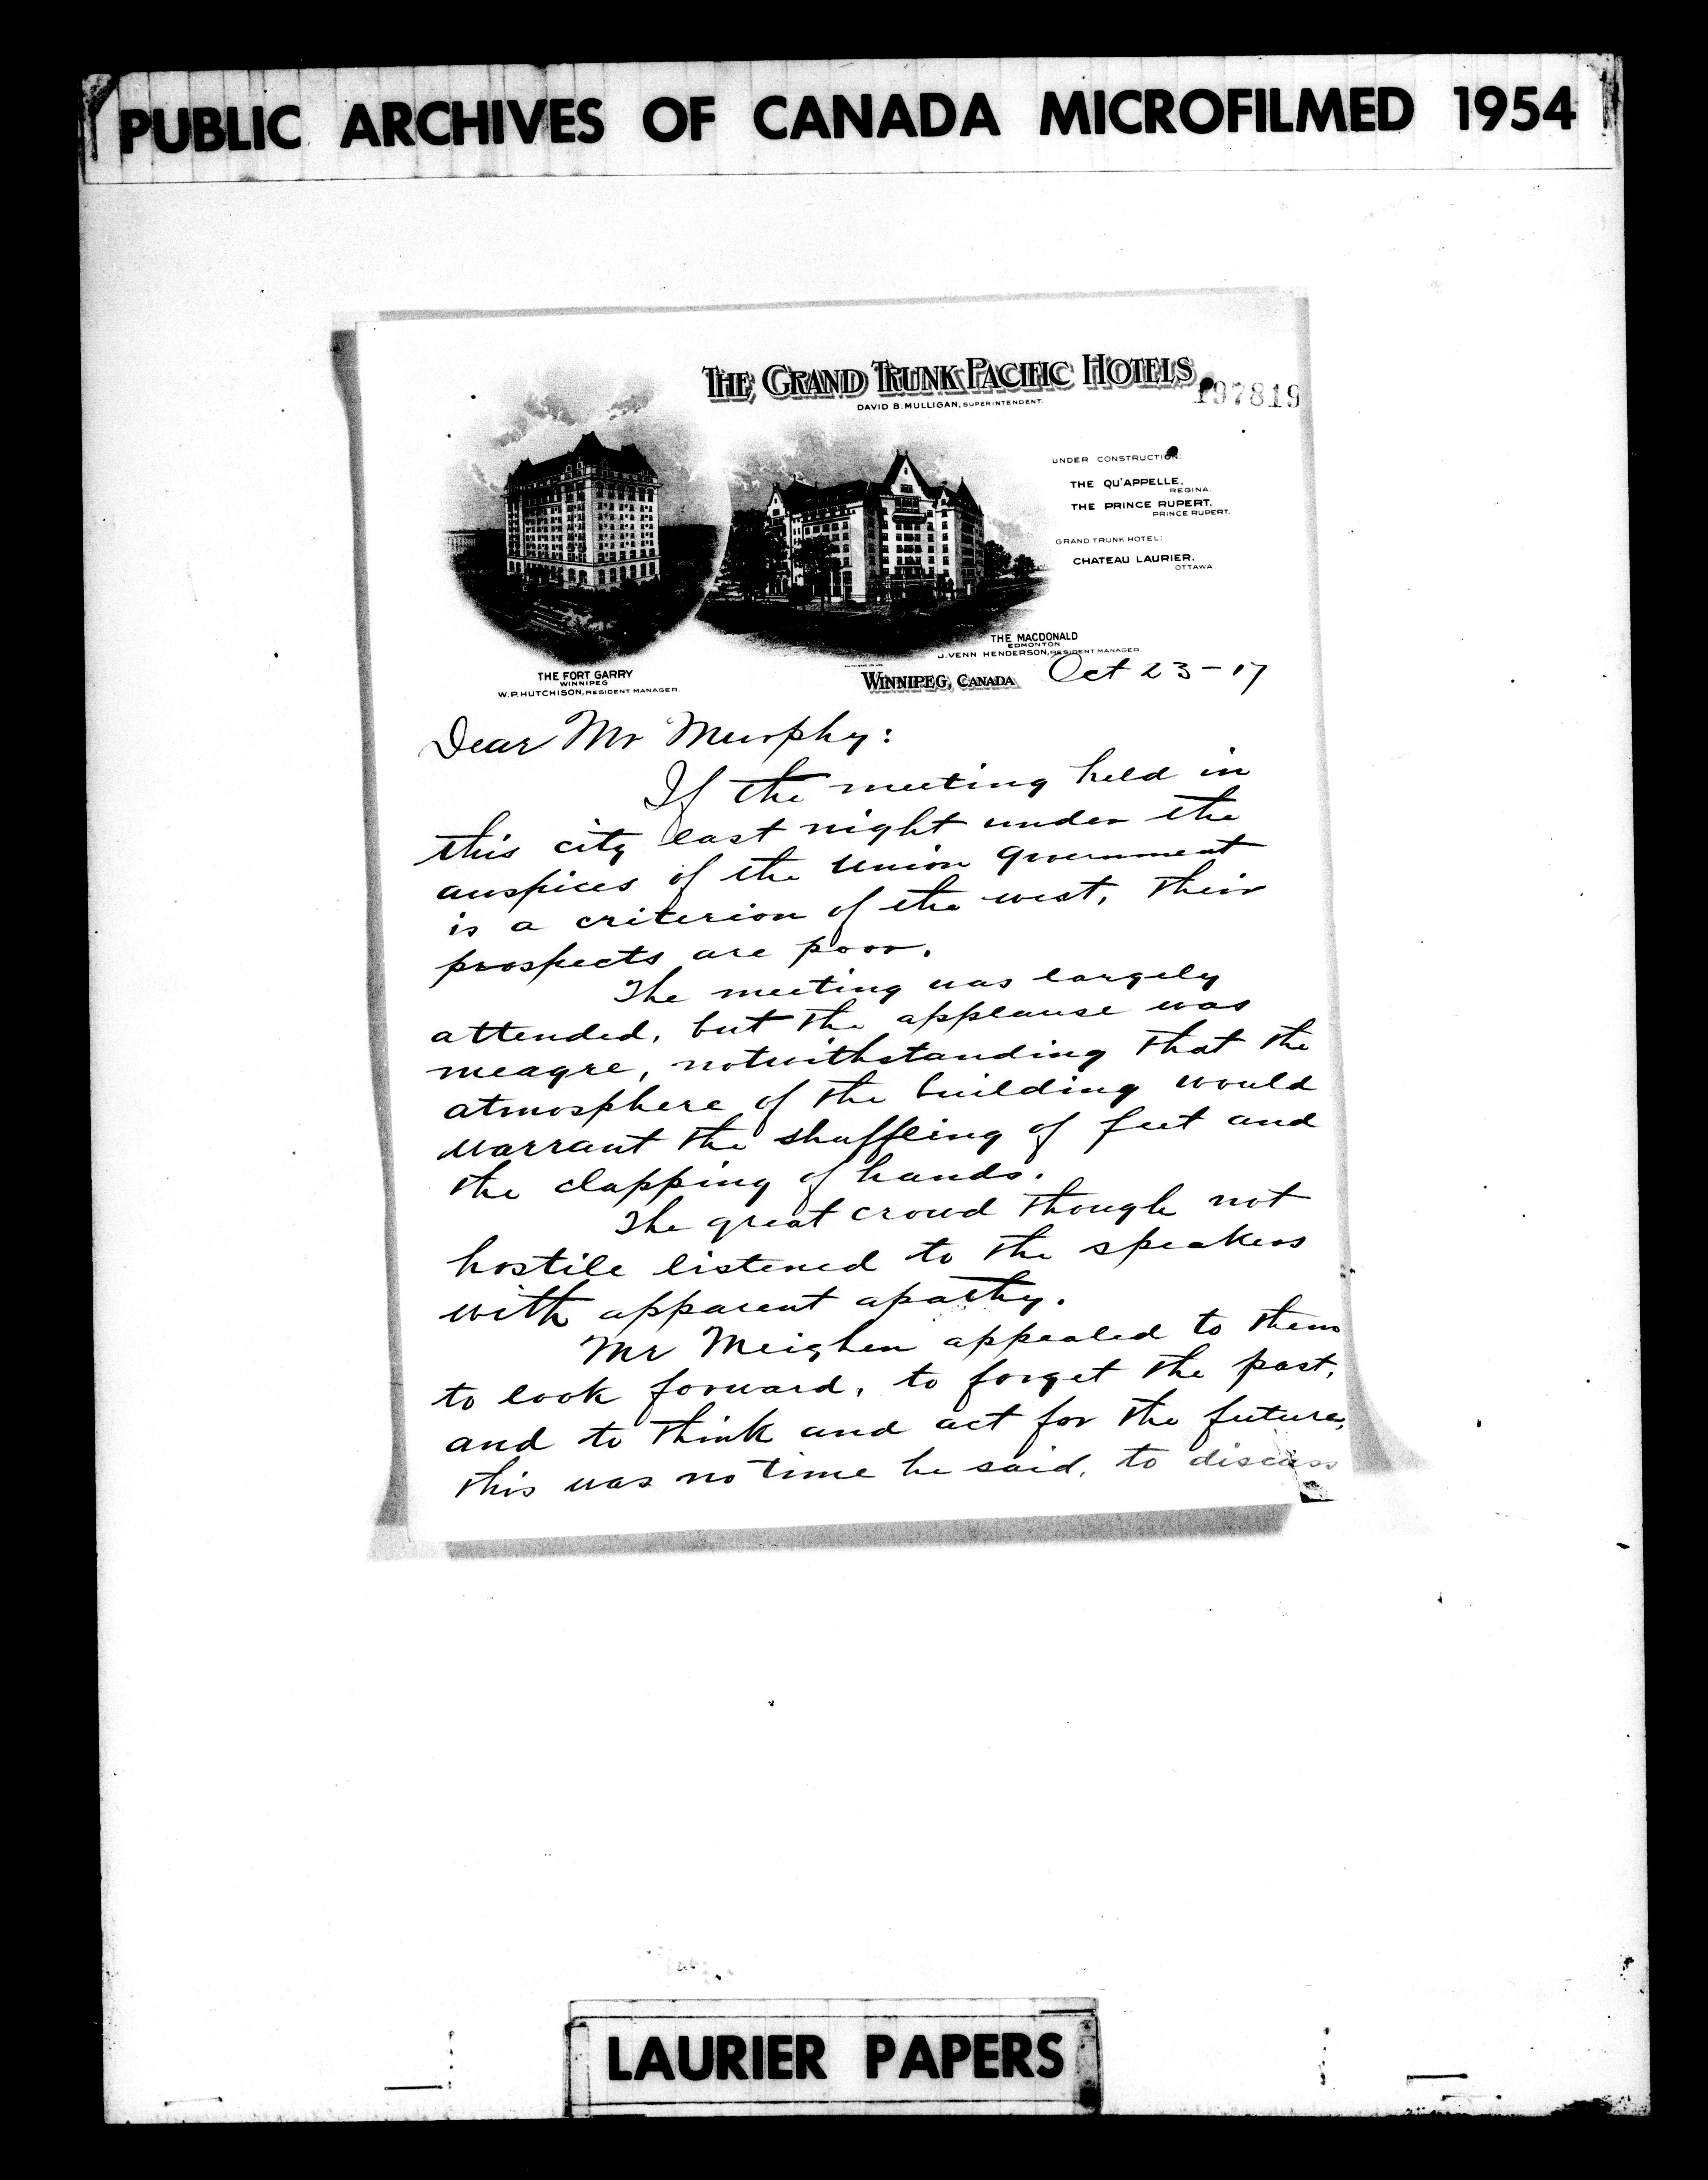 PUBLIC ARCHIVES OF CANADA MICROFILMED 1954
THE GRAND TRUNK PACIFIC HOTELS
197819
DAVID B. MULLIGAN, SUPERINTENDENT.
UNDER CONSTRUCTION:
THE QU'APPELLE,
REGINA.
THE PRINCE RUPERT,
PRINCE RUPERT.
GRAND TRUNK HOTEL:
CHATEAU LAURIER,
OTTAWA.
THE MACDONALD
EDMONTON
J. VENN HENDERSON, RESIDENT MANAGER.
THE FORT GARRY
WINNIPEG
W. P. HUTCHISON, RESIDENT MANAGER.
WINNIPEG, CANADA Oct 23-17
Dear Mr Murphy:
If the meeting held in
this city last night under the
auspices of the Union Government
is a criterion of the west, their
prospects are poor.
The meeting was largely
attended, but the applause was
meagre, notwithstanding that the
atmosphere of the building would
warrant the shuffling of feet and
the clapping of hands.
The great crowd though not
hostile listened to the speakers
with apparent apathy.
Mr Meighen appealed to them
to look forward, to forget the past,
and to think and act for the future,
this was no time he said, to discuss
LAURIER PAPERS